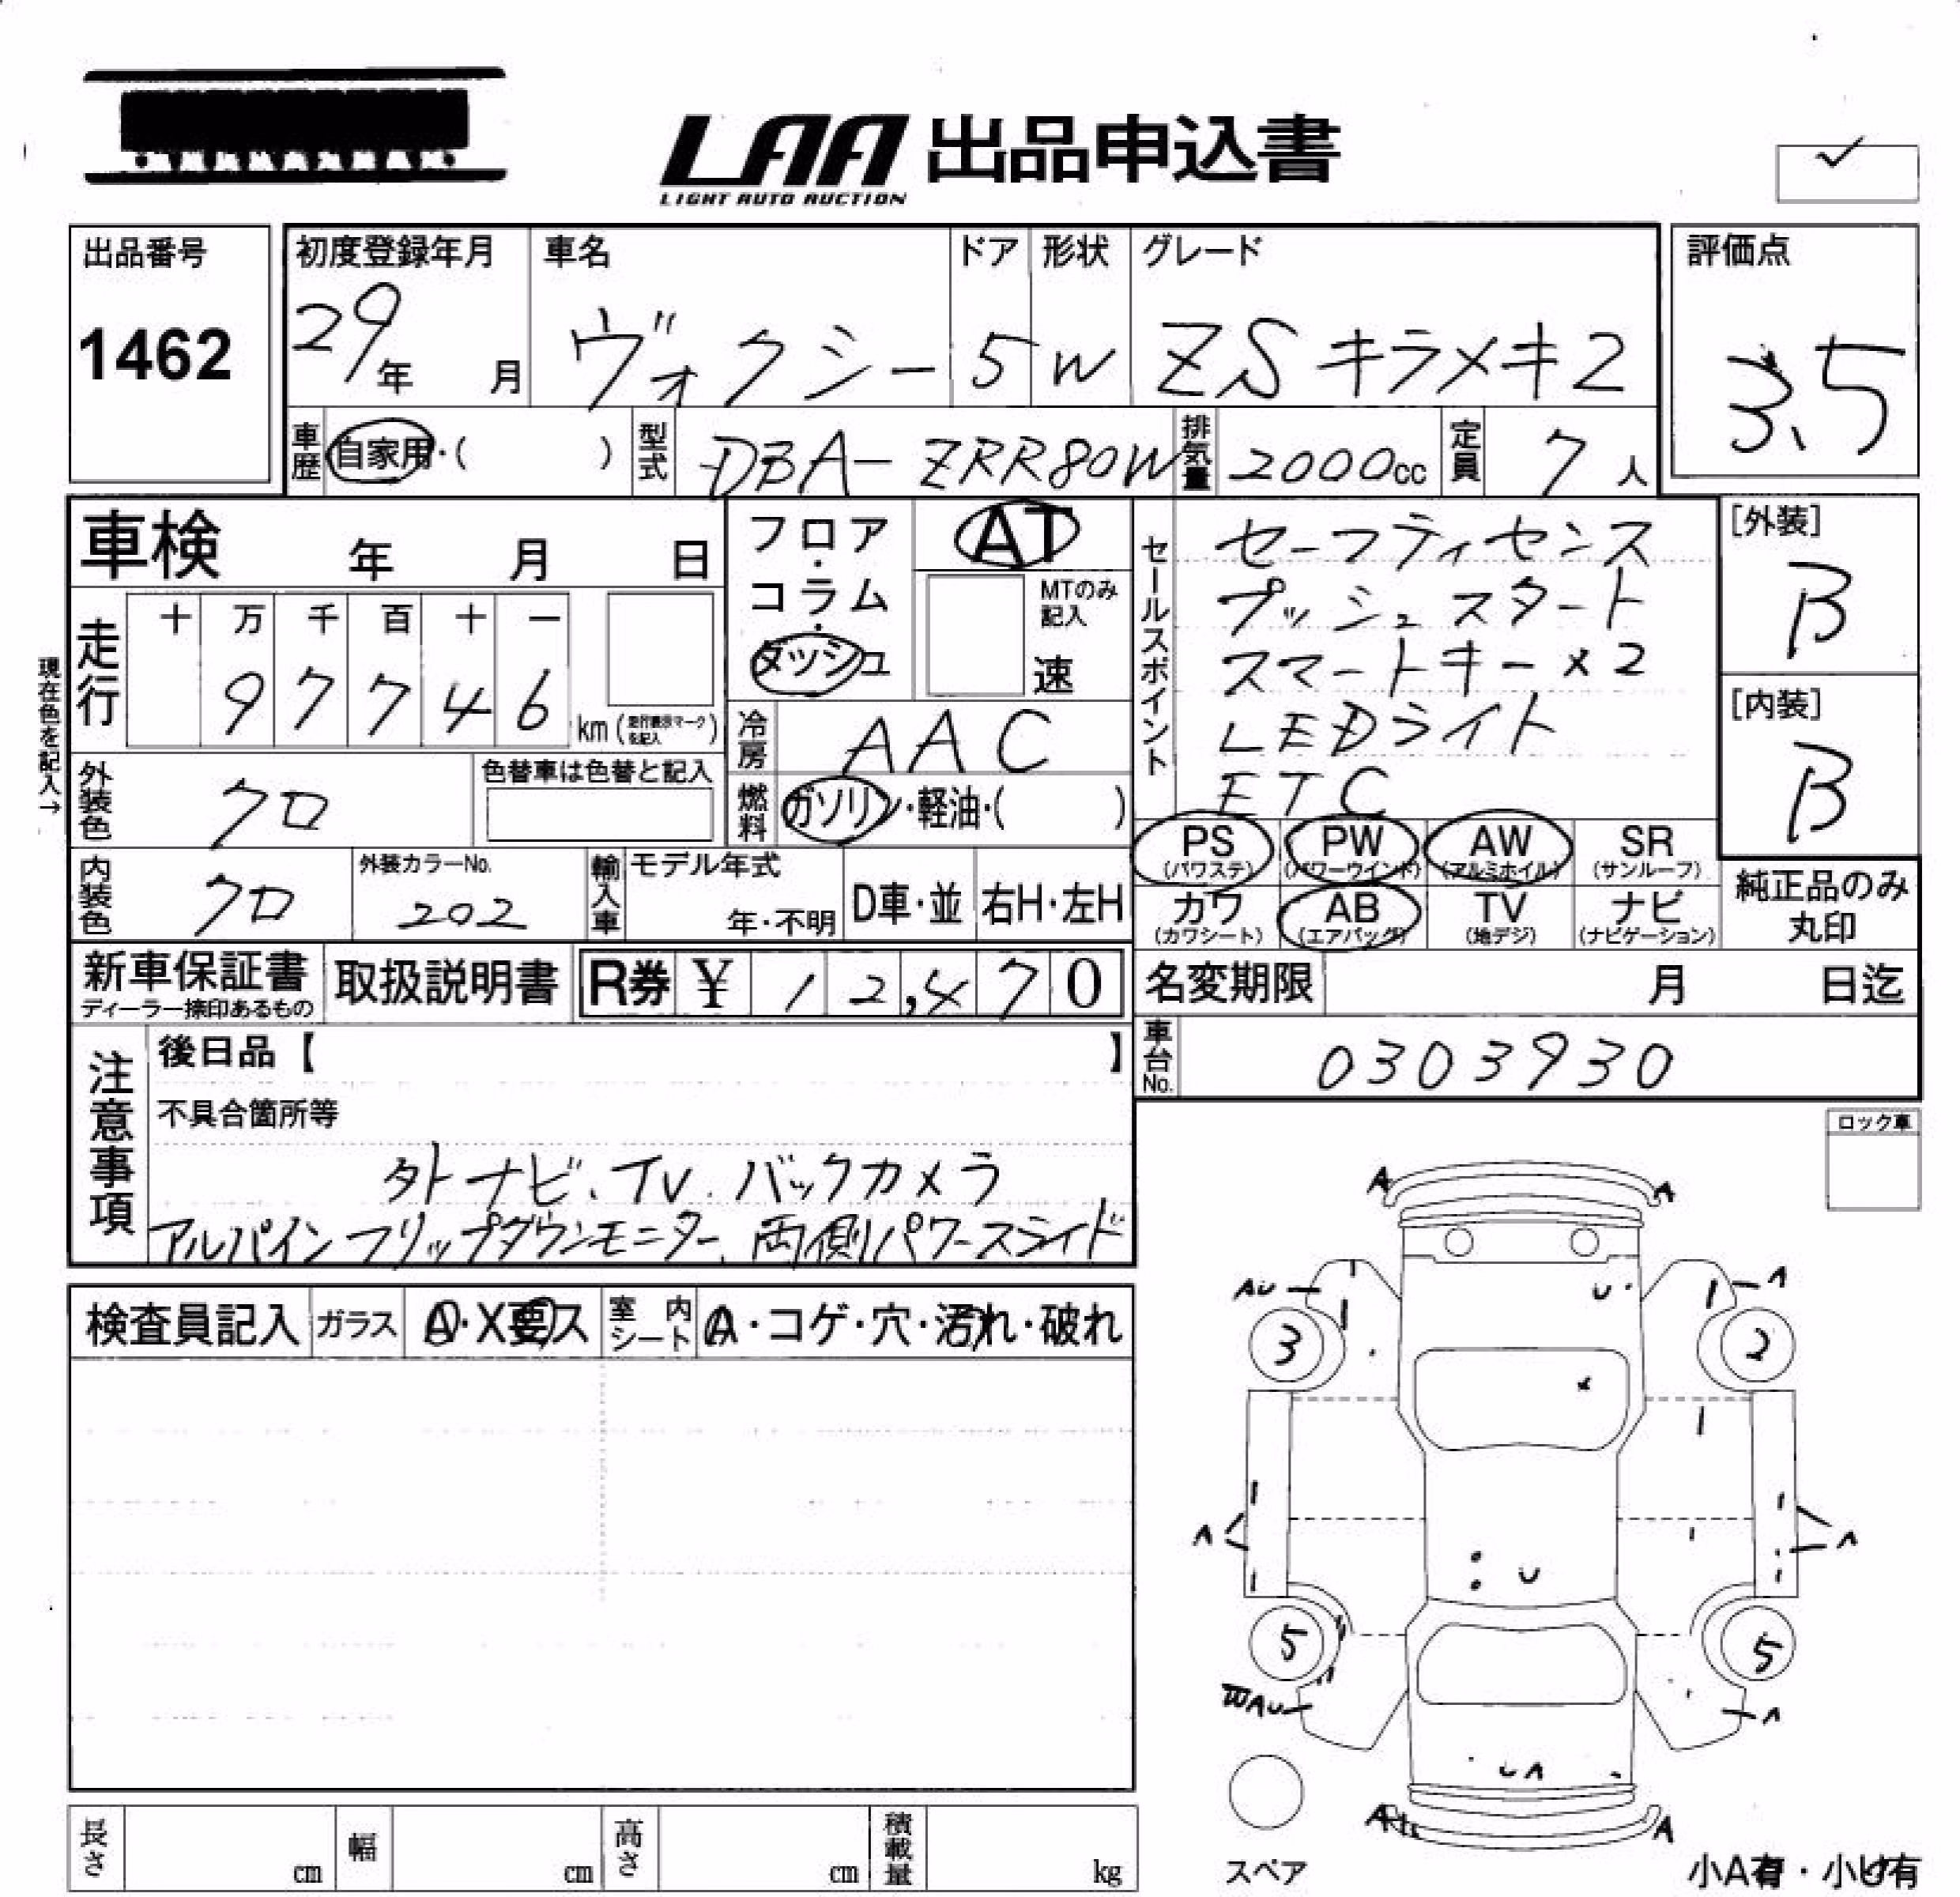 LAA 出品申込書
LIGHT AUTO AUCTION
出品番号
1462
初度登録年月
29年 月
車名
ヴォクシー
ドア
5
形状
W
グレード
ZSキラメキ2
評価点
3.5
車歴 自家用・( )
型式 DBA-ZRR80W
排気量 2000cc
定員 7人
車検 年 月 日
フロア・コラム・ダッシュ
AT
MTのみ記入
速
セールスポイント
セーフティセンス
プッシュスタート
スマートキー×2
LEDライト
ETC
[外装]
B
[内装]
B
現在色を記入→
走行
十 万 千 百 十 一
9 7 7 4 6 km (走行表示マークを記入)
冷房 AAC
外装色 クロ
色替車は色替と記入
燃料 ガソリン・軽油・( )
PS (パワステ)
PW (パワーウインド)
AW (アルミホイル)
SR (サンルーフ)
カワ (カワシート)
AB (エアバッグ)
TV (地デジ)
ナビ (ナビゲーション)
純正品のみ
丸印
内装色 クロ
外装カラーNo.
202
輸入車
モデル年式
年・不明
D車・並
右H・左H
新車保証書
ディーラー捺印あるもの
取扱説明書
R券 ¥ 12,470
名変期限 月 日迄
車台No. 0303930
注意事項
後日品【 】
不具合箇所等
外ナビ、TV、バックカメラ
アルパインフリップダウンモニター、両側パワースライド
ロック車
検査員記入
ガラス A・X要ス
室内シート A・コゲ・穴・汚れ・破れ
A A
AU A
3 2
U
A A
U
5 5
WAU A
UA
A A
スペア
小A有・小U有
長さ cm
幅 cm
高さ cm
積載量 kg